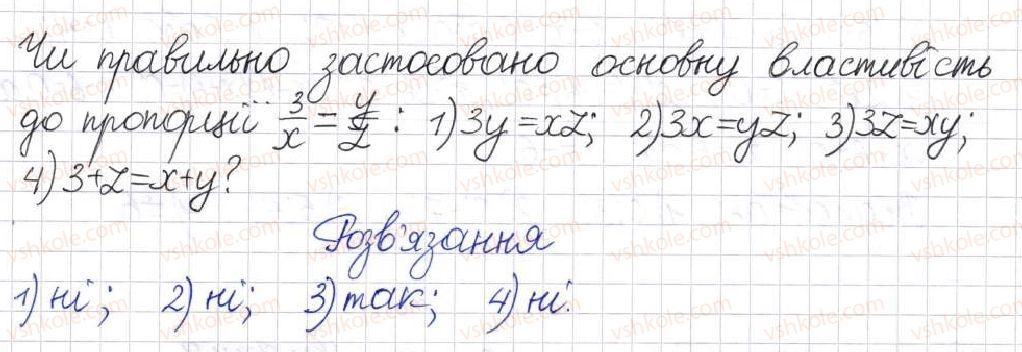 Чи правильно застосовано основну властивість
до пропорції 3/x = y/z : 1) 3y = xz; 2) 3x = yz; 3) 3z = xy;
4) 3+z = x+y?
Розв'язання
1) ні; 2) ні; 3) так; 4) ні.